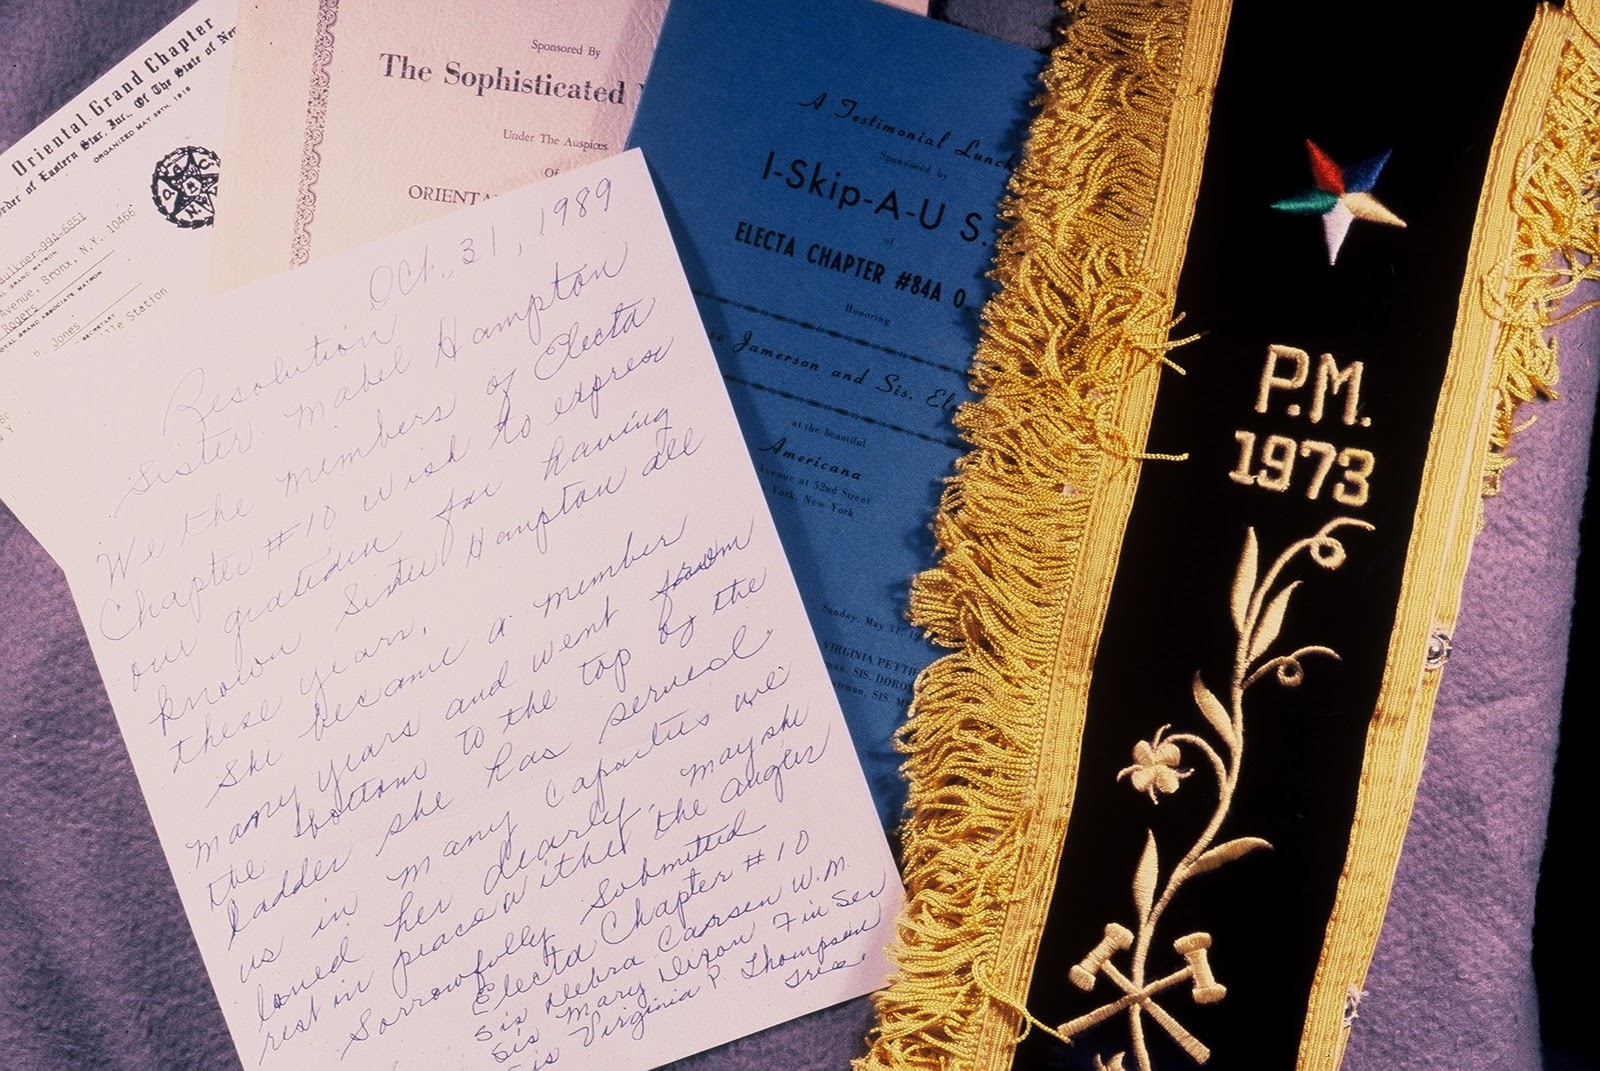 Oriental Grand Chapter
Order of Eastern Star, Inc., Of The State of
ORGANIZED MAY 29TH, 1916
994-6851
GRAND MATRON
Avenue, Bronx, N.Y. 10466
Rogers
ROYAL GRAND ASSOCIATE MATRON
Jones
SECRETARY
Station
Sponsored By
The Sophisticated
Under The Auspices
Of
ORIENTAL
A Testimonial Lunch
Sponsored by
I-Skip-A-U S.
of
ELECTA CHAPTER #84A O
Honoring
Jamerson and Sis.
at the beautiful
Americana
Avenue at 52nd Street
York, New York
Sunday, May 31, 19
VIRGINIA
SIS.
SIS.
Oct. 31, 1989
Resolution
Sister Mabel Hampton
We the members of Electa
Chapter #10 wish to express
our gratidun for having
known Sister Hampton all
these years.
She became a member
many years and went from
the bottom to the top of the
ladder she has served
us in many capaties we
loved her dearly. may she
rest in peace with the Angles
Sorrowfully Submitted
Electa Chapter #10
Sis Debra Carsen W.M.
Sis Mary Dixon Fin Sec
Sis Virginia P. Thompson
Tres.
P.M.
1973